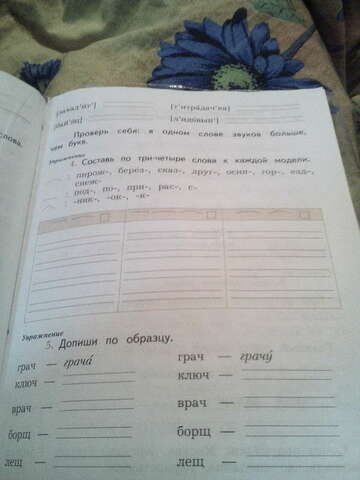 Проверь себя: в одном слове звуков больше,
чем букв.
Упражнение
4. Составь по три-четыре слова к каждой модели.
: пирож-, берёз-, сказ-, друг-, осин-, гор-, езд-,
снеж-
: под-, по-, при-, рас-, с-
: -ник-, -ок-, -к-
Упражнение
5. Допиши по образцу.
грач — грача́ грач — грачу́
ключ — ключ —
врач — врач —
борщ — борщ —
лещ — лещ —